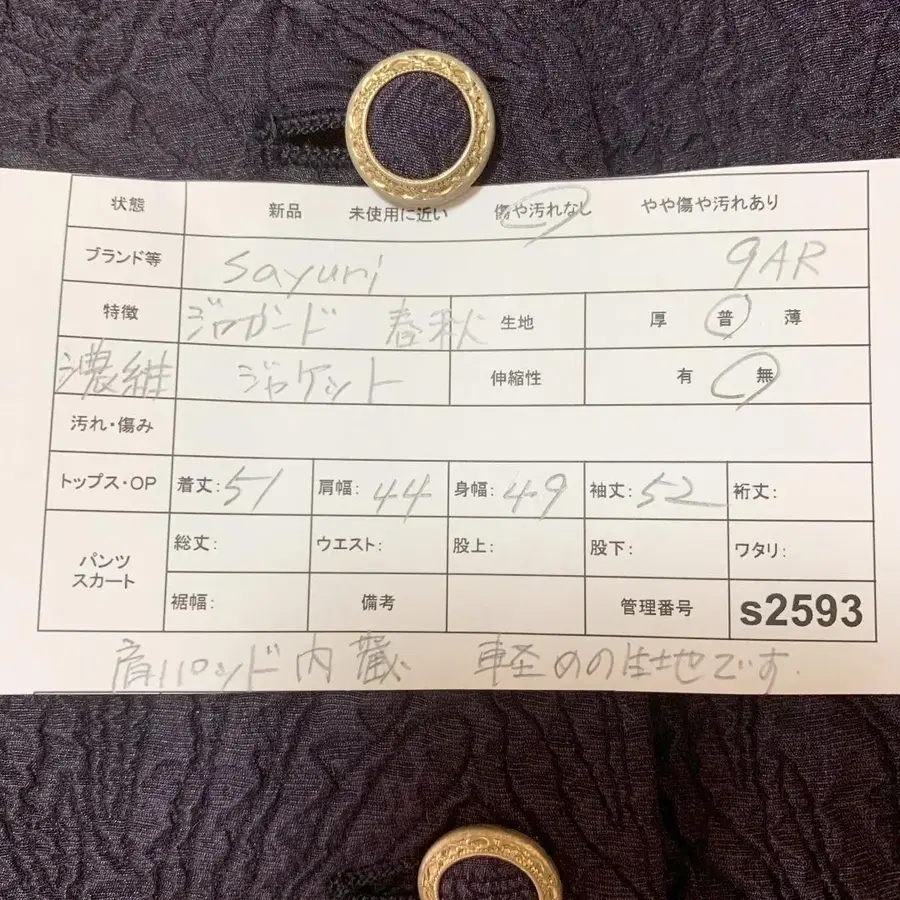 状態 新品 未使用に近い 傷や汚れなし やや傷や汚れあり
ブランド等 sayuri 9AR
特徴 ジャガード 春秋 生地 厚 普 薄
濃紺 ジャケット 伸縮性 有 無
汚れ・傷み
トップス・OP 着丈:51 肩幅:44 身幅:49 袖丈:52 裄丈:
パンツ スカート 総丈: ウエスト: 股上: 股下: ワタリ:
裾幅: 備考 管理番号 s2593
肩パッド内蔵 軽めの生地です.